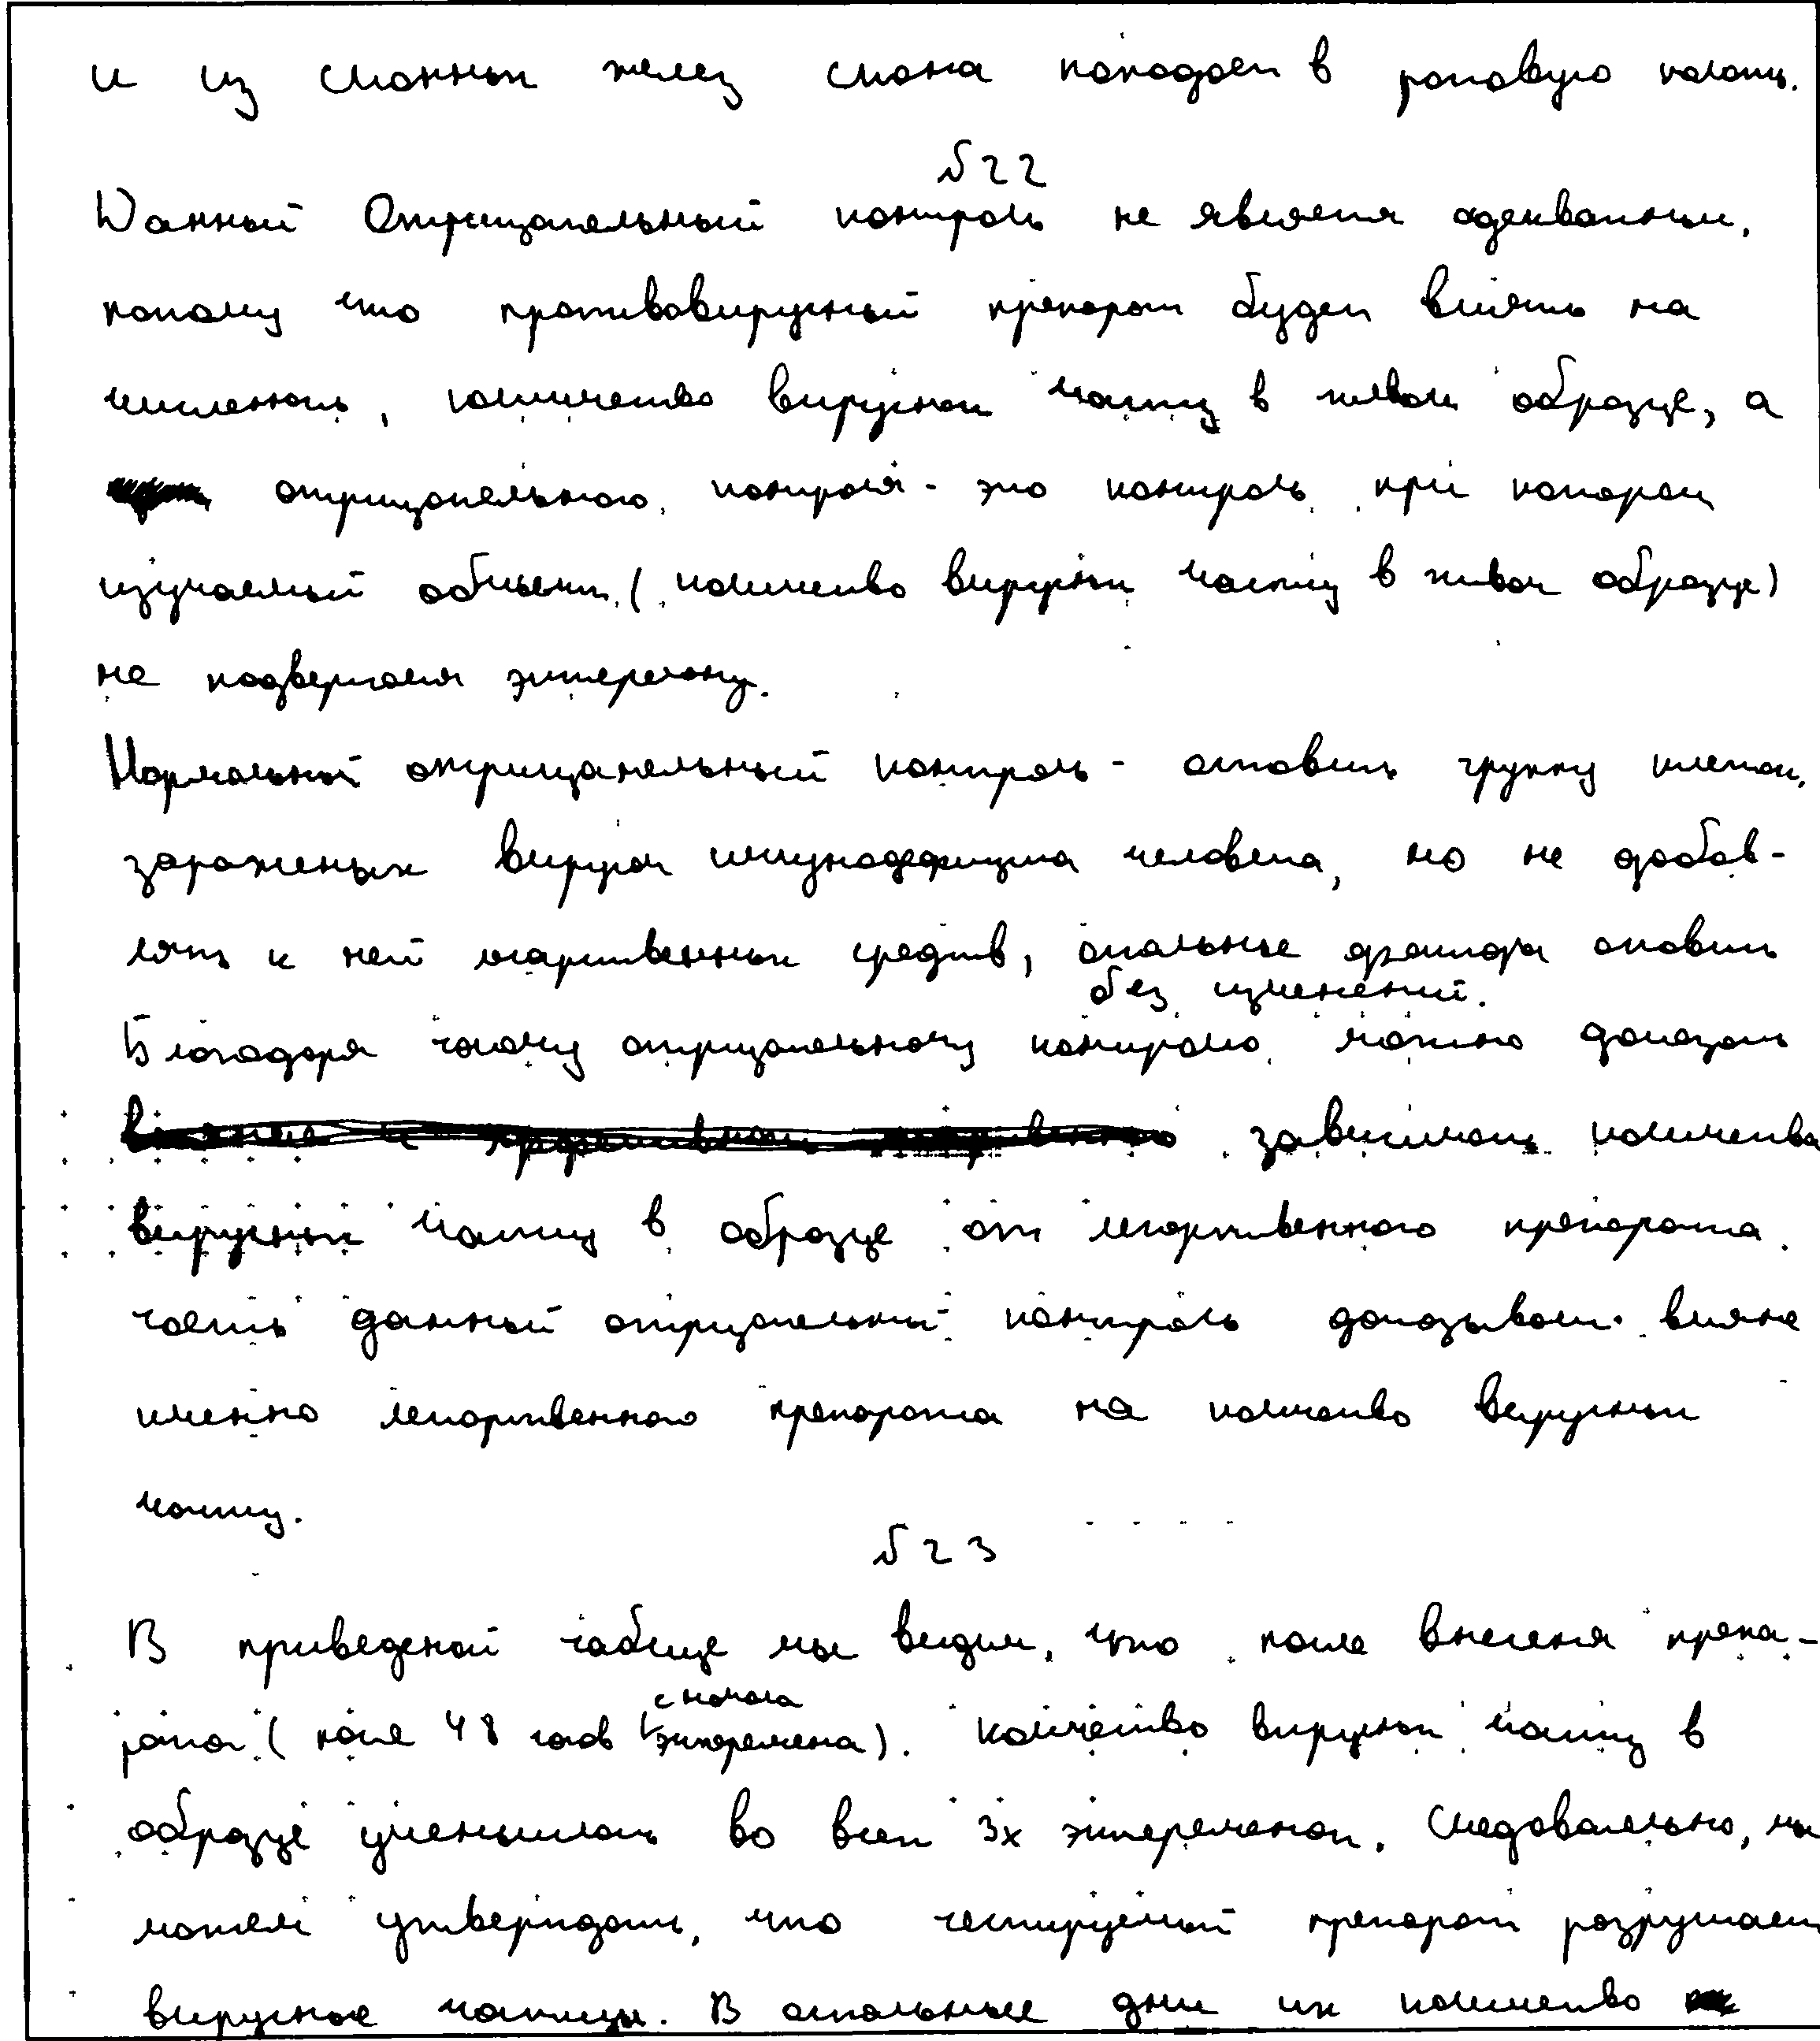 и из слюнных желез слюна попадает в ротовую полость.
№22
Данный Отрицательный контроль не является адекватным,
потому что противовирусный препарат будет влиять на
численность, количество вирусных частиц в живом образце, а
отрицательного контроля - это контроль при котором
изучаемый объект (количество вирусных частиц в живом образце)
не подвергался эксперементу.
Нормальный отрицательный контроль - оставить группу клеток,
зараженых вирусом иммунодефицита человека, но не добав-
лять к ней лекарственных средств, остальные факторы оставить
без изменений.
Благодаря такому отрицательному контролю можно доказать
зависимость количества
вирусных частиц в образце от лекарственного препарата.
тоесть данный отрицательный контроль доказывает влияние
именно лекарственного препарата на количество вирусных
частиц.
№23
В приведеной таблице мы видим, что после внесения препа-
с начала
рата (после 48 часов эксперемента). количество вирусных частиц в
образце уменьшилось во всех 3х эксперементах. Следовательно, мы
можем утверждать, что тестируемый препарат разрушает
вирусные частицы. В остальные дни их количество